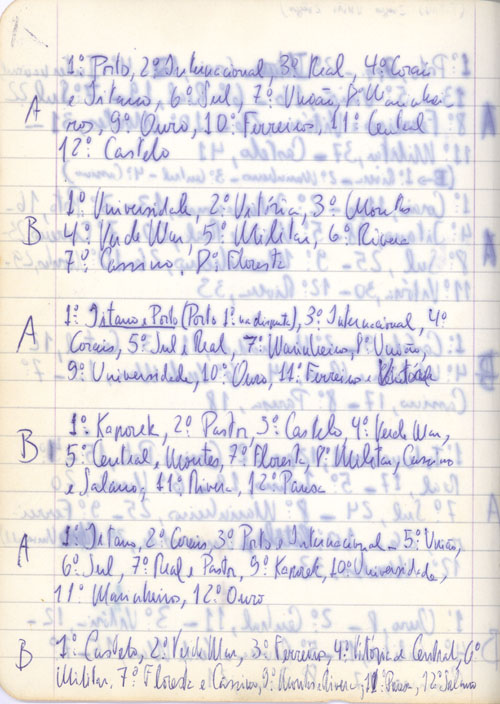 1º Porto, 2º Internacional, 3º Real, 4º Corais
A e Titano, 6º Sul, 7º União, 8º Marinhei
ros, 9º Ouro, 10º Ferreiros, 11º Central
12º Castelo
1º Universidade, 2º Vitória, 3º Montes
B 4º Verde Mar, 5º Militar, 6º Rivera
7º Cassino, 8º Floresta
1º Titano e Porto (Porto 1º na disputa), 3º Internacional, 4º
A Corais, 5º Sul e Real, 7º Marinheiro, 8º União,
9º Universidade, 10º Ouro, 11º Ferreiro e Vitória
1º Kaporek, 2º Pastor, 3º Castelo, 4º Verde Mar,
B 5º Central e Montes, 7º Floresta, 8º Militar, Cassino
e Salano, 11º Rivera, 12º Paresa
1º Titano, 2º Corais, 3º Porto e Internacional - 5º União,
A 6º Sul, 7º Real e Pastor, 9º Kaporek, 10º Universidade,
11º Marinheiro, 12º Ouro
1º Castelo, 2º Verde Mar, 3º Ferreiro, 4º Vitória e Central, 6º
B Militar, 7º Floresta e Cassino, 9º Montes e Rivera, 11º Paresa, 12º Salano